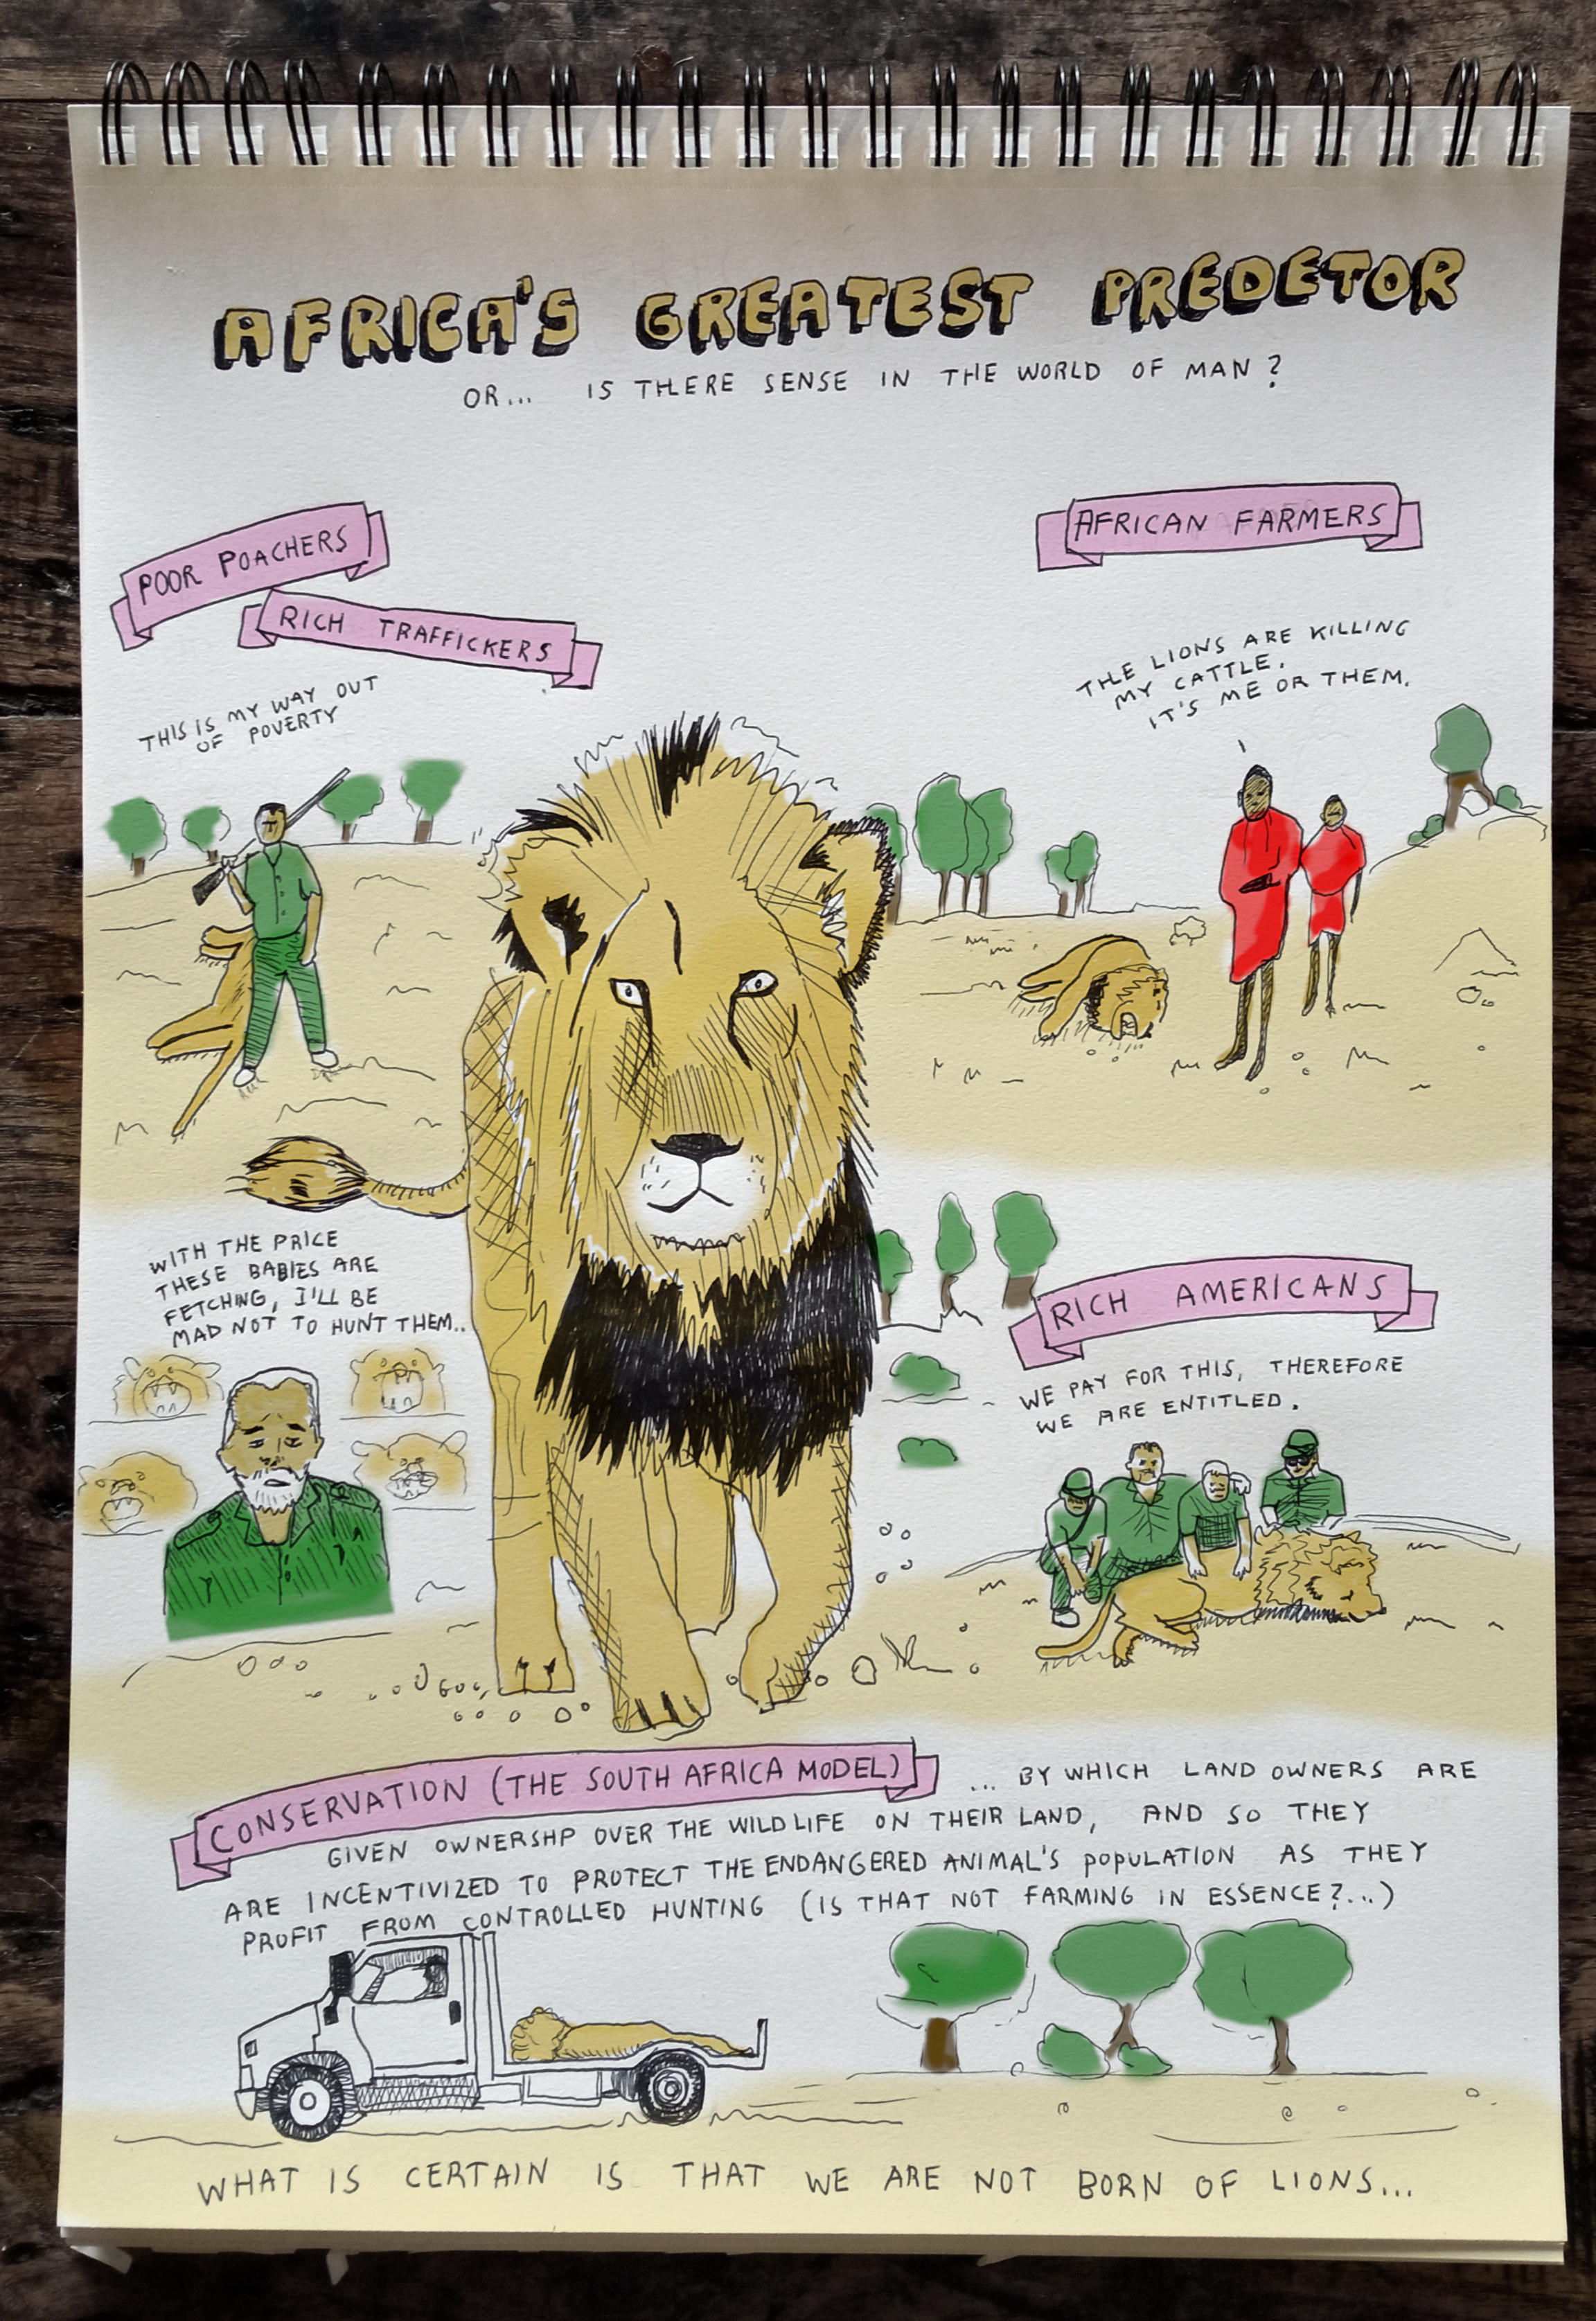 AFRICA'S GREATEST PREDETOR
OR... IS THERE SENSE IN THE WORLD OF MAN?
POOR POACHERS
RICH TRAFFICKERS
THIS IS MY WAY OUT
OF POVERTY
AFRICAN FARMERS
THE LIONS ARE KILLING
MY CATTLE.
IT'S ME OR THEM.
WITH THE PRICE
THESE BABIES ARE
FETCHING, I'LL BE
MAD NOT TO HUNT THEM..
RICH AMERICANS
WE PAY FOR THIS, THEREFORE
WE ARE ENTITLED.
CONSERVATION (THE SOUTH AFRICA MODEL) ... BY WHICH LAND OWNERS ARE
GIVEN OWNERSHP OVER THE WILDLIFE ON THEIR LAND, AND SO THEY
ARE INCENTIVIZED TO PROTECT THE ENDANGERED ANIMAL'S POPULATION AS THEY
PROFIT FROM CONTROLLED HUNTING (IS THAT NOT FARMING IN ESSENCE?...)
WHAT IS CERTAIN IS THAT WE ARE NOT BORN OF LIONS...